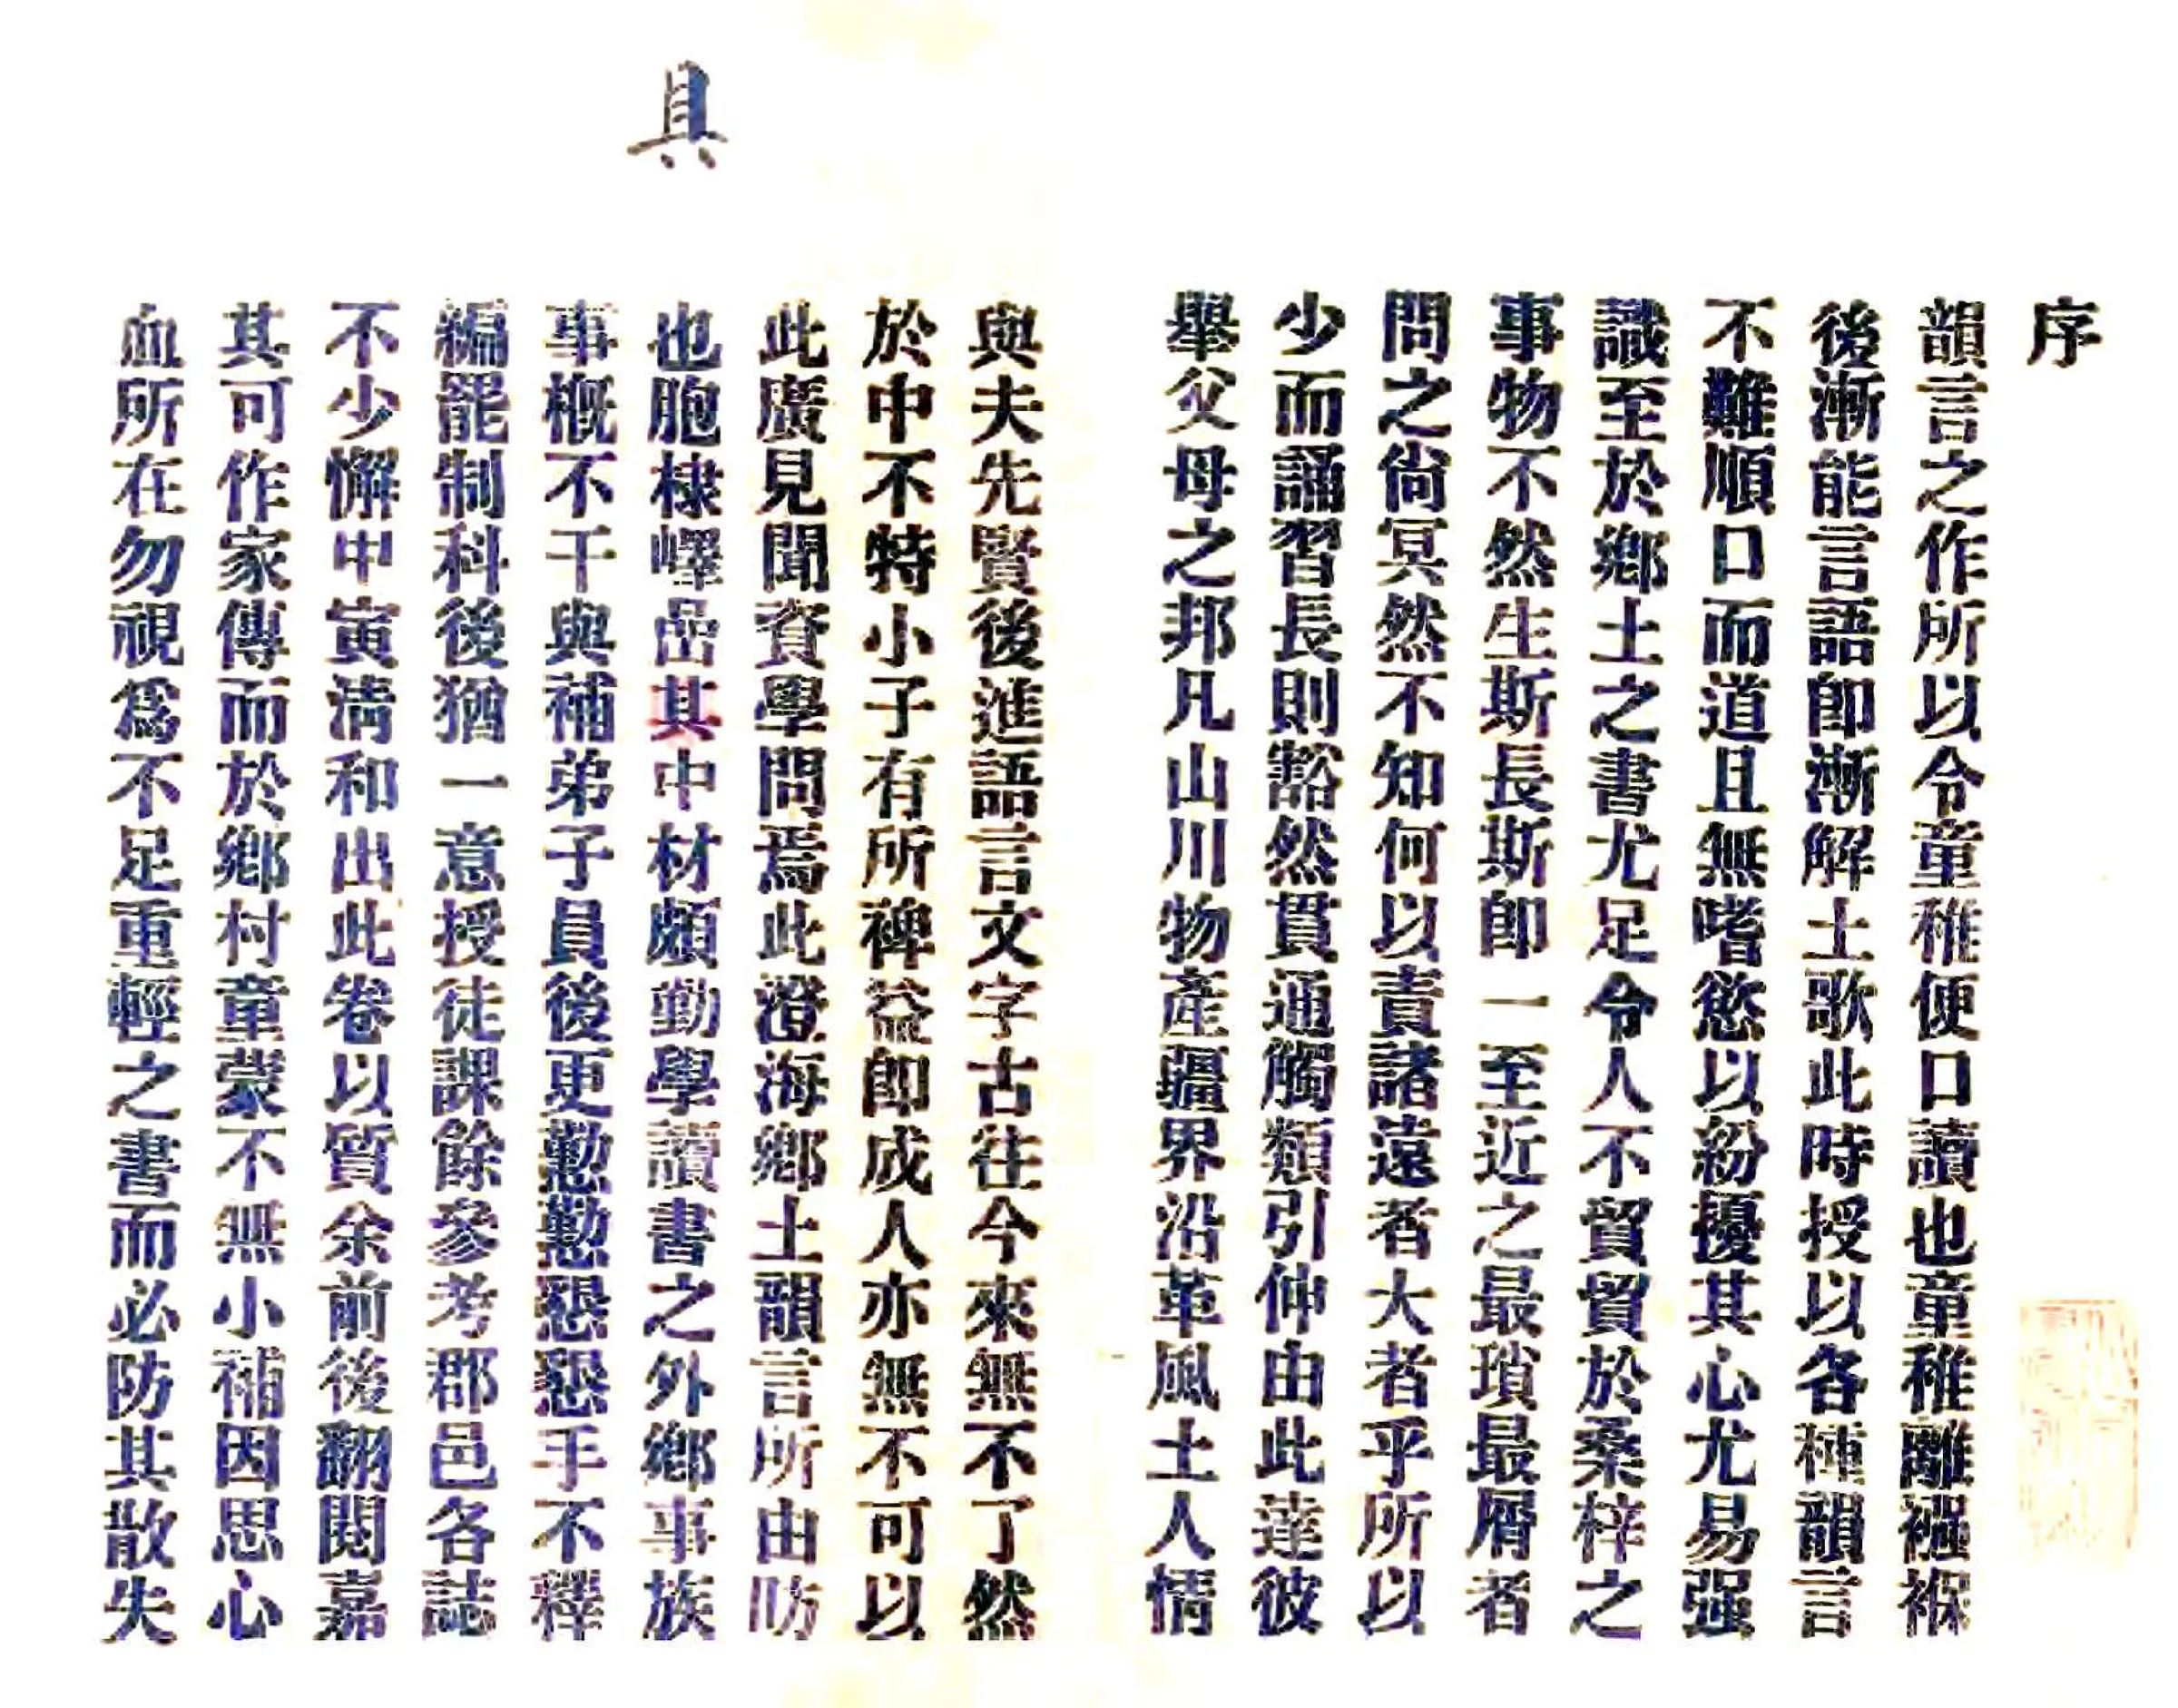 序
韻言之作所以令童稚便口讀也童稚離襁褓
後漸能言語卽漸解土歌此時授以各種韻言
不難順口而道且無嗜慾以紛擾其心尤易强
識至於鄉土之書尤足令人不貿貿於桑梓之
事物不然生斯長斯卽一至近之最瑣最屑者
問之尙冥然不知何以責諸遠者大者乎所以
少而誦習長則豁然貫通觸類引伸由此達彼
舉父母之邦凡山川物產疆界沿革風土人情
與夫先賢後進語言文字古往今來無不了然
於中不特小子有所裨益卽成人亦無不可以
此廣見聞資學問焉此澄海鄉土韻言所由昉
也胞棣嶧嵒其中材頗勤學讀書之外鄉事族
具
事槪不干與補弟子員後更懃懃懇懇手不釋
編罷制科後猶一意授徒課餘參考郡邑各誌
不少懈甲寅淸和出此卷以質余前後翻閱嘉
其可作家傳而於鄉村童蒙不無小補因思心
血所在勿視爲不足重輕之書而必防其散失